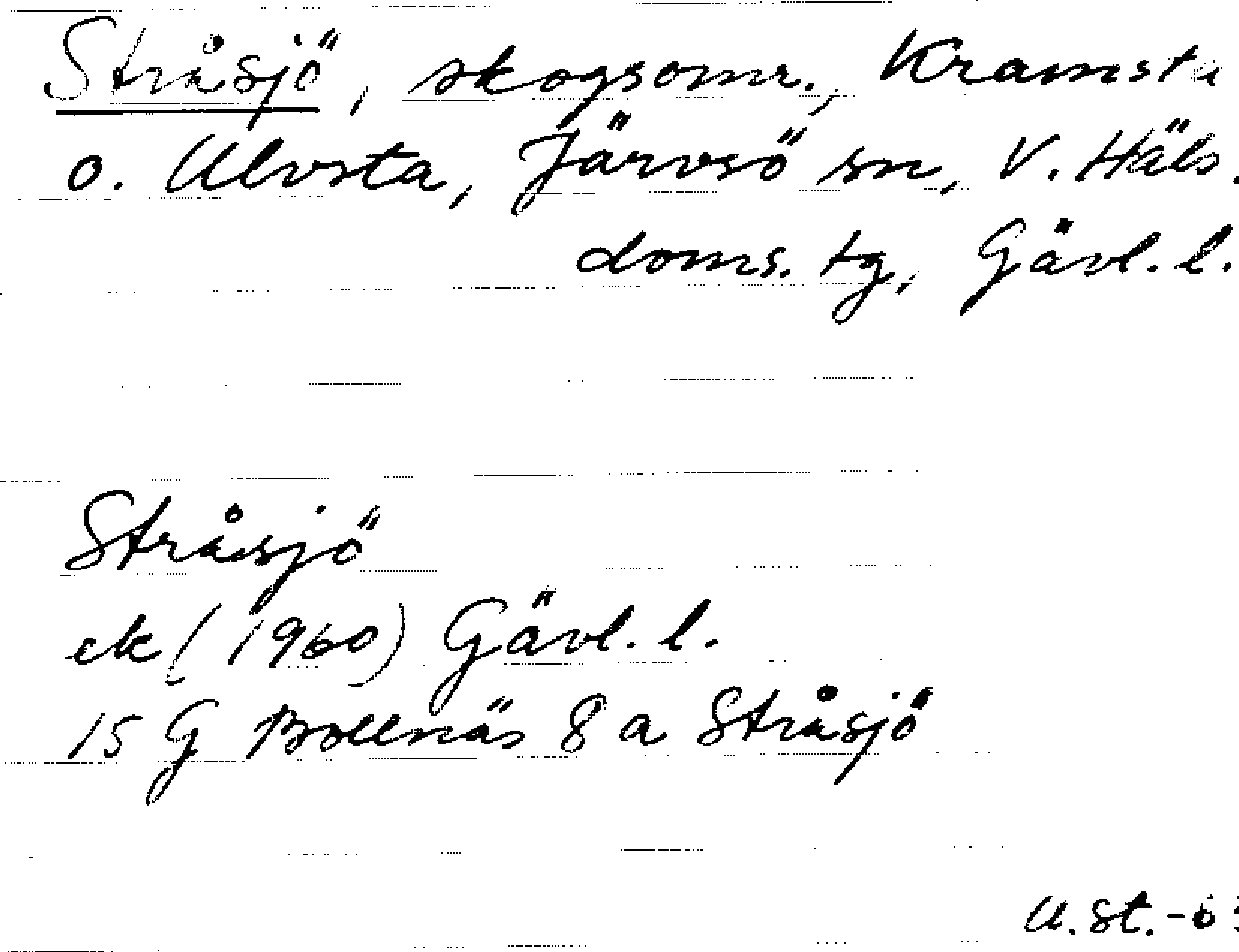 Stråsjö, skogsomr., Kramsta
o. Ulvsta, Järvsö sn, V. Häls.
doms. tg, Gävl. l.
Stråsjö
ek (1960) Gävl. l.
15 G Bollnäs 8 a Stråsjö
U. St.